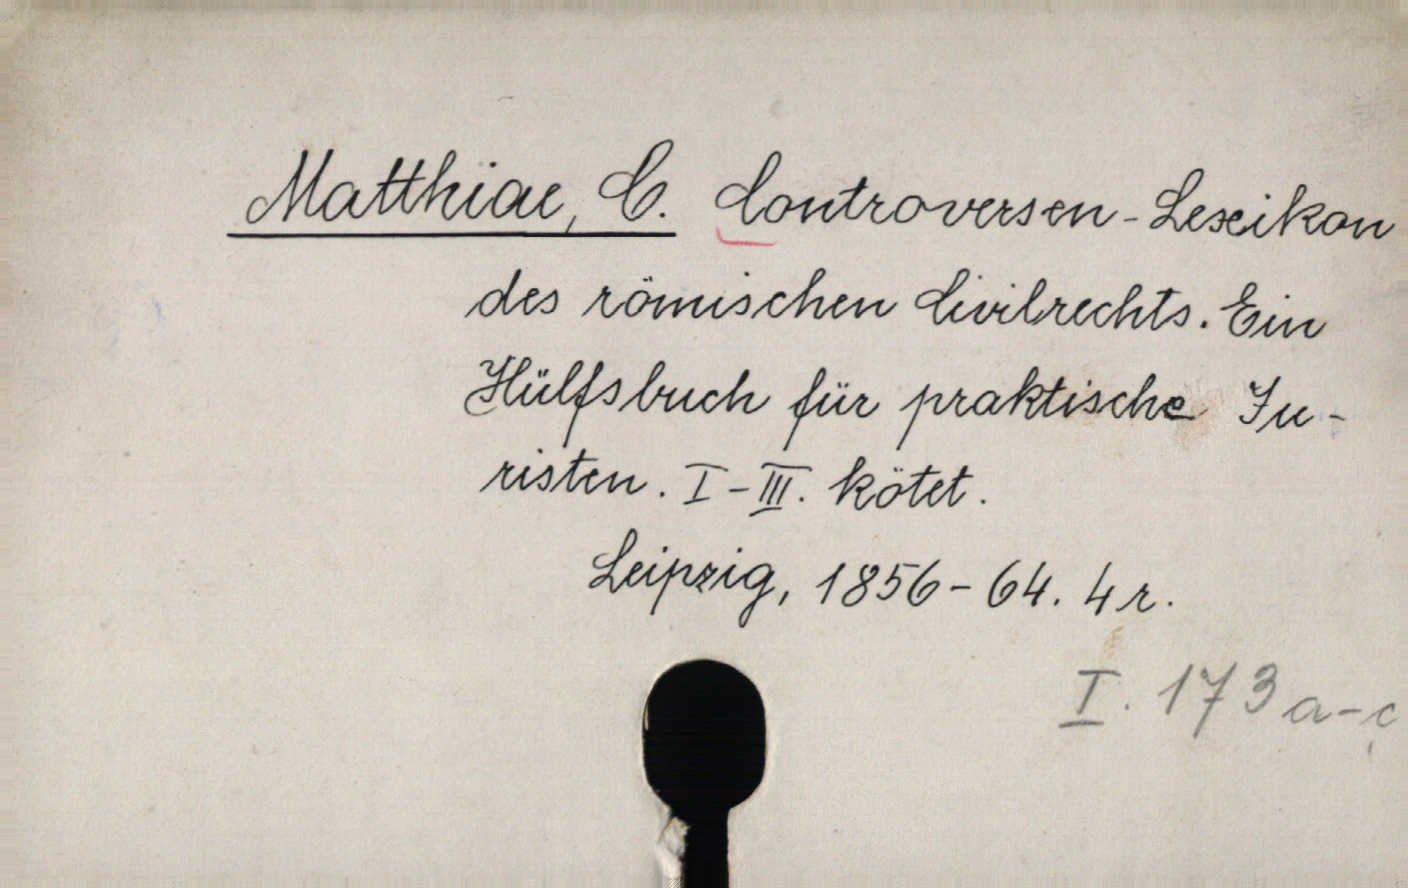 Matthiae, C. Controversen-Lexikon
des römischen Civilrechts. Ein
Hülfsbuch für praktische Ju-
risten. I-III. kötet.
Leipzig, 1856-64. 4 r.
I. 173 a-c